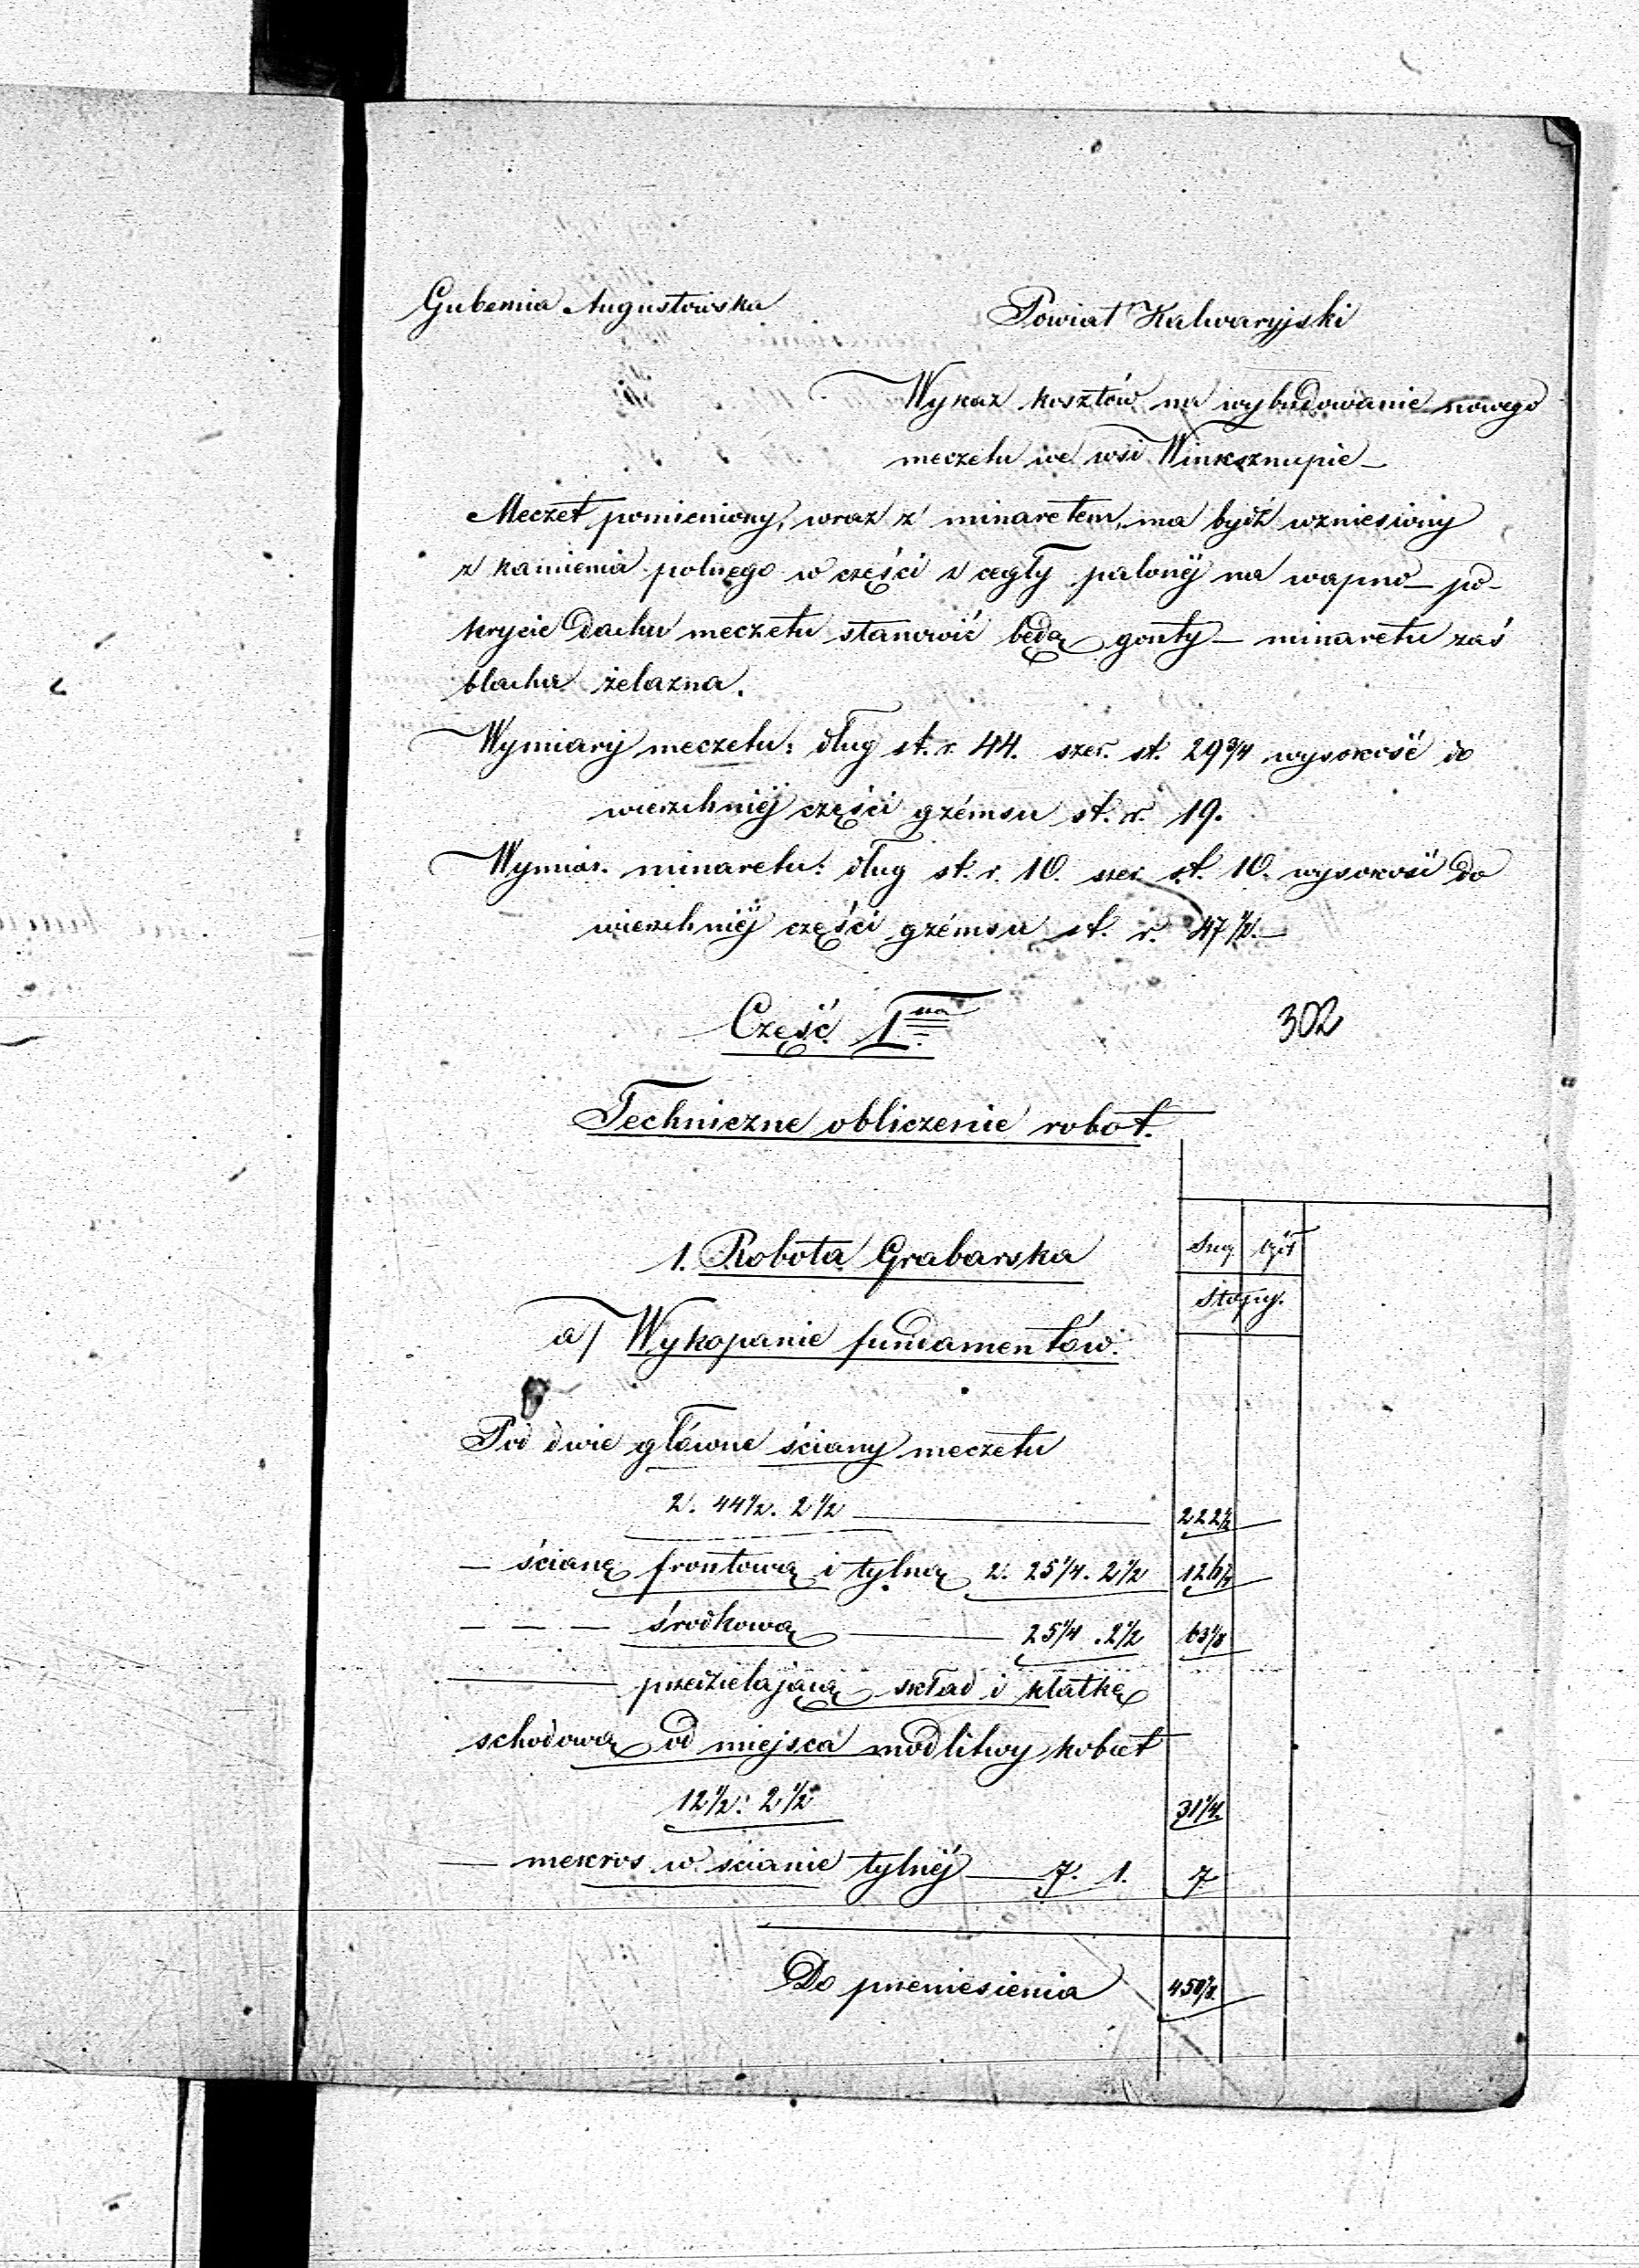 Gubernia Augustowska
Powiat Kalwaryjski
Wykaz kosztów na wybudowanie nowego
meczetu we wsi Winksznupie –
Meczet pomieniony, wraz z minaretem, ma bydź wzniesiony
z kamienia polnego w części z cegły palonéj na wapno – po-
krycie dachu meczetu stanowić będą gonty – minaretu zaś
blacha żelazna.
Wymiary meczetu: dług st. r. 44. szer. st. 29 3/4 wysokość do
wierzchniéj części gzémsu st. r. 19.
Wymiar. minaretu: dług st. r. 10. szer. st. 10. wysokość do
wierzchniéj części gzémsu st. r. 47 1/2. –
Część I na
302
Techniczne obliczenie robot.
1. Robota Grabarska
Stopy.
a/ Wykopanie fundamentów.
Pod dwie główne ściany meczetu
2. 44 1/2. 2 1/2 — 222 1/2
– ścianę frontową i tylną 2. 25 1/4. 2 1/2 126 1/4
– – – środkową — 25 1/4. 2 1/2 63 1/8
— przedzielającą skład i klatkę
schodową od miejsca modlitwy kobiet
12 1/2. 2 1/2 31 1/4.
— w ścianie tylnéj — 7. 1. 7
Do przeniesienia 450 1/8.